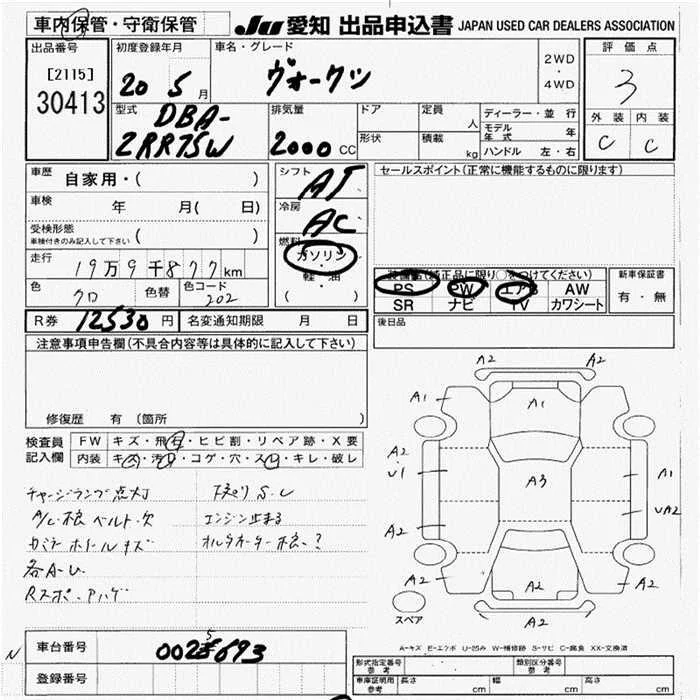 車内保管・守衛保管
JU 愛知 出品申込書 JAPAN USED CAR DEALERS ASSOCIATION
出品番号
[2115]
30413
初度登録年月
20 5月
車名・グレード
ヴォークシ
2WD
・
4WD
評価点
3
外装 内装
C C
型式
DBA-
ZRR75W
排気量
2000 CC
ドア
形状
定員
人
積載
kg
ディーラー・並行
モデル年式 年
ハンドル 左・右
車歴
自家用・( )
車検
年 月( 日)
受検形態
車検付きのみ記入して下さい ( )
走行
19万9千877km
色
クロ
色替
色コード
202
シフト
AT
冷房
AC
燃料
ガソリン
・
軽・油
( )
セールスポイント(正常に機能するものに限ります)
装備品(純正品に限り○をつけてください)
PS PW エアB AW
SR ナビ TV カワシート
新車保証書
有・無
後日品
R券 12530円
名変通知期限 月 日
注意事項申告欄(不具合内容等は具体的に記入して下さい)
修復歴 有 〔箇所 〕
検査員
記入欄
FW キズ・飛石・ヒビ割・リペア跡・X要
内装 キズ・汚レ・コゲ・穴・スレ・キレ・破レ
チャージランプ点灯
A/C根 ベルト欠
エンジン止まる
各A-U
A2 A2
A1 A1 A1
A2
U1 A3 A1
UA2
A2 A2
A2 A2 A2
A2
スペア
A-キズ E-エクボ U-凹み W-補修跡 S-サビ C-腐食 XX-交換済
N
車台番号
5
002 693
登録番号
形式指定番号
参考
類別区分番号
参考
車庫証明用
参考
長さ cm
幅 cm
高さ cm